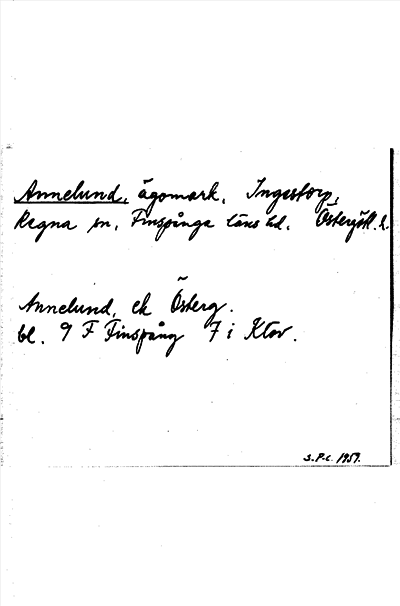 Annelund, ägomark, Ingestorp,
Regna sn, Finspånga läns hd. Östergötl. l.
Annelund, ek Österg.
bl. 9 F Finspång 7 i Ktov.
S.P-l. 1959.